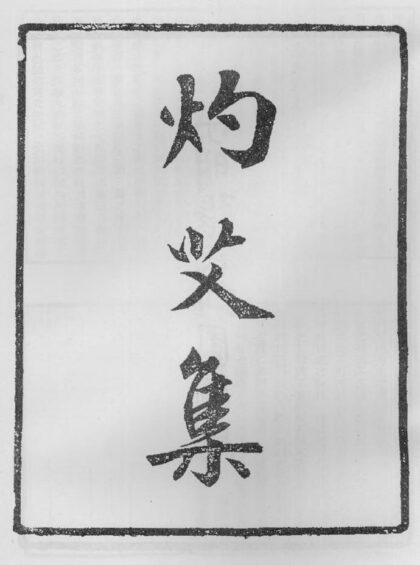 灼艾集